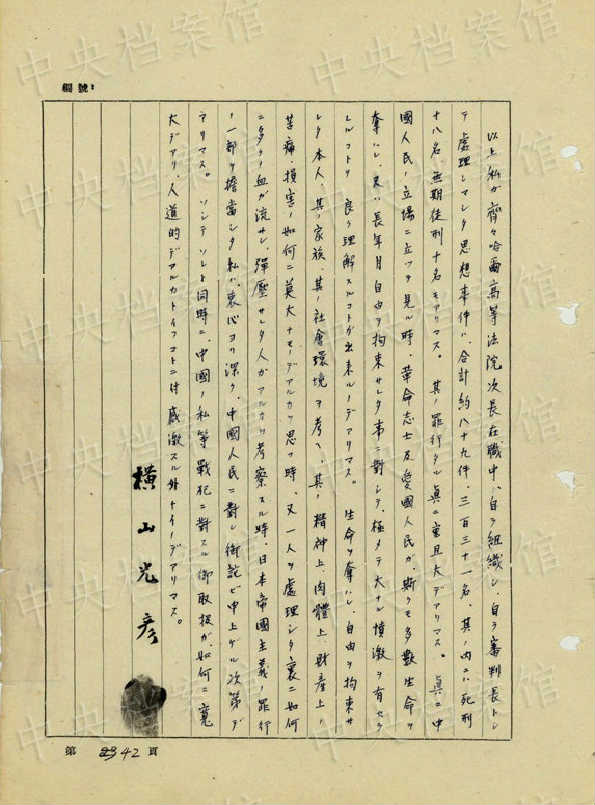 編號：
以上私ガ齊々哈爾高等法院次長在職中、自ラ組織シ、自ラ審判長トシ
テ處理シマシタ思想事件ハ、合計約八十九件、三百三十一名、其ノ内ニハ死刑
十八名、無期徒刑十名モアリマス。其ノ罪行タル眞ニ重且大デアリマス。眞ニ中
國人民ノ立場ニ立ツテ見ル時、革命志士及愛國人民ガ、斯クモ多數生命ヲ
奪ハレ、又ハ長年月自由ヲ拘束サレタ事ニ對シテ、極メテ大ナル憤激ヲ有セラ
レルコトヲ良ク理解スルコトガ出來ルノデアリマス。生命ヲ奪ハレ、自由ヲ拘束サ
レタ本人、其ノ家族、其ノ社會環境ヲ考ヘ、其ノ精神上、肉體上、財產上ノ
苦痛、損害ノ如何ニ莫大ナモノデアルカヲ思フ時、又一人ヲ處理シタ裏ニ如何
ニ多クノ血ガ流サレ、彈壓サレタ人ガアルカヲ考察スル時、日本帝國主義ノ罪行
ノ一部ヲ擔當シタ私ハ、衷心ヨリ深ク、中國人民ニ對シ御詫ビ申上ゲル次第デ
アリマス。ソシテソレト同時ニ、中國ノ私等戰犯ニ對スル御取扱ガ、如何ニ寬
大デアリ、人道的デアルカトイフコトニ付感激スル外ナイノデアリマス。
横山光彥
第 42 頁
中央档案馆